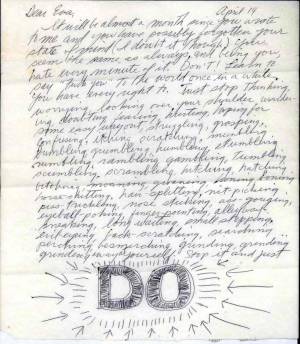 Dear Eva, April 14
It will be almost a month since you wrote
to me and you have possibly forgotten your
state of mind (I doubt it though). You
seem the same as always, and being you,
hate every minute of it. Don't! Learn to
say "Fuck You" to the world once in a while.
You have every right to. Just stop thinking,
worrying, looking over your shoulder, wonder-
ing, doubting, fearing, hurting, hoping for
some easy way out, struggling, grasping,
confusing, itching, scratching, mumbling
bumbling, grumbling, humbling, stumbling
rumbling, rambling, gambling, tumbling
scumbling, scrambling, hitching, hatching
bitching, moaning, groaning, honing, boning
horse-shitting, hair-splitting, nit-picking
piss-trickling, nose sticking, ass-gouging,
eyeball-poking, finger-pointing, alleyway
sneaking, long waiting, small stepping,
evil-eying, back-scratching, searching
perching, besmirching, grinding, grinding
grinding away at yourself. Stop it and just
DO